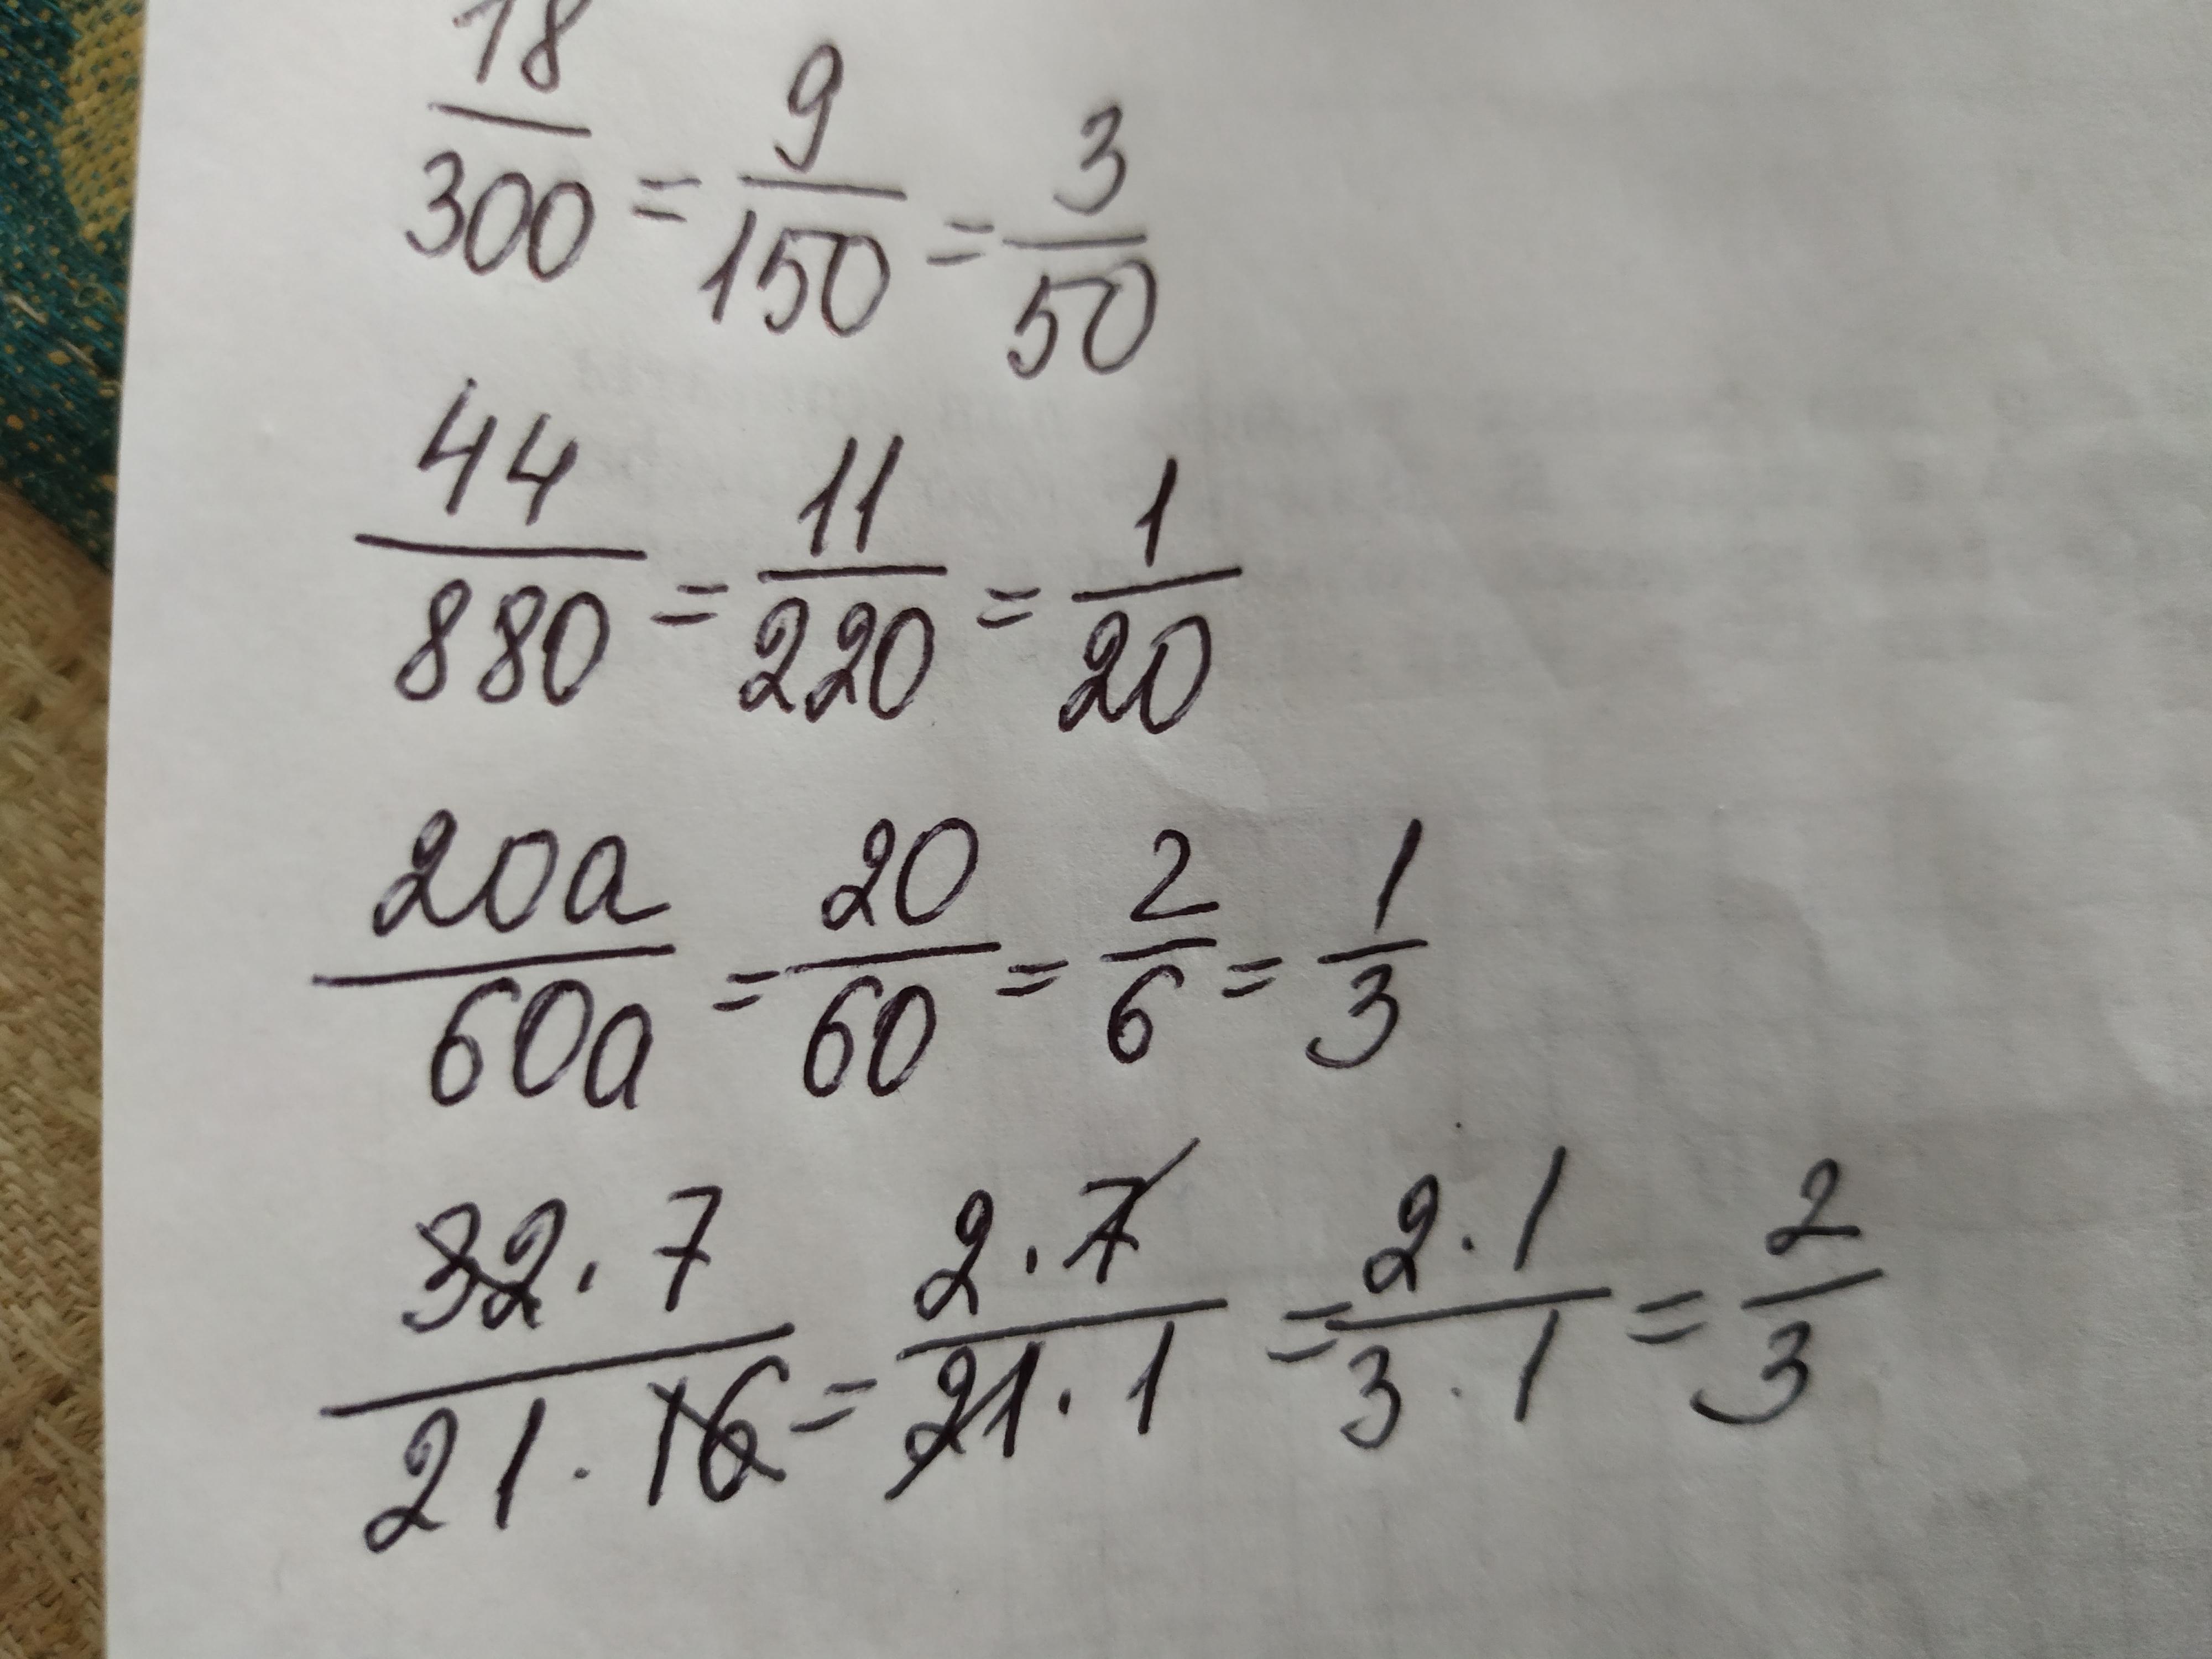 18/300 = 9/150 = 3/50
44/880 = 11/220 = 1/20
20a/60a = 20/60 = 2/6 = 1/3
32·7/21·16 = 2·7/21·1 = 2·1/3·1 = 2/3